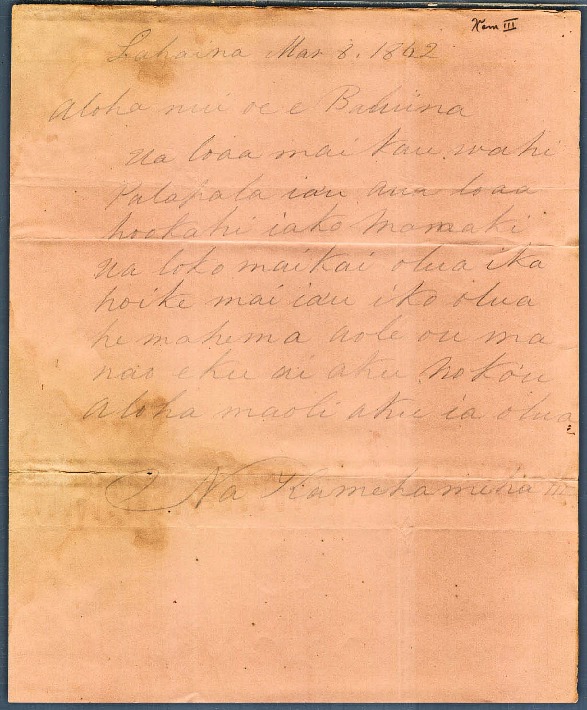 Kam III
Lahaina Mar 8. 1842
Aloha nui oe e
Ua loaa mai kau wahi
Palapala iau ana loaa
hookahi iako mamaki
ua loko maikai olua ika
hoike mai iau iko olua
he mahema aole ou ma-
nao eku ai aku nokou
Aloha maoli aku ia olua
Na Kamehameha III